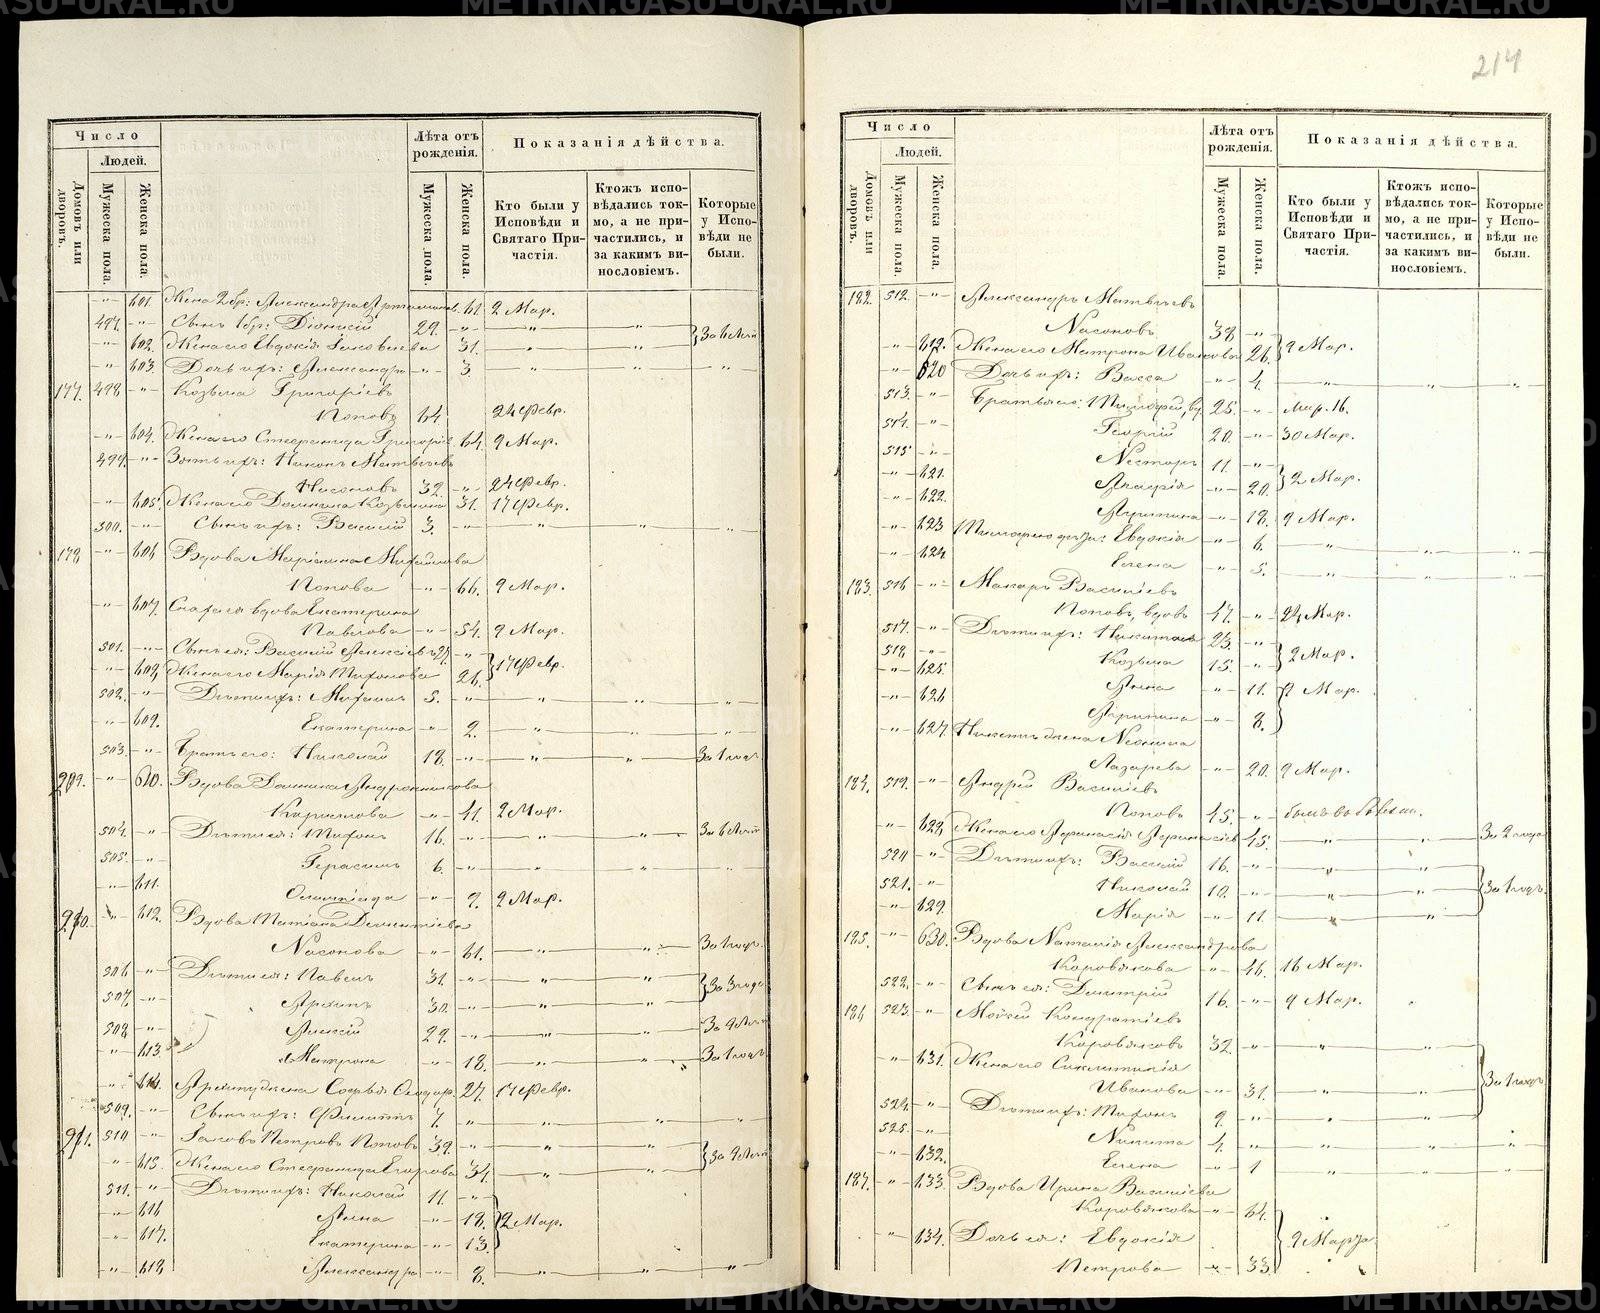 METRIKI.GASU-URAL.RU
214
Число
Людей.
Домовъ или дворовъ.
Мужеска пола.
Женска пола.
Лѣта отъ рожденія.
Мужеска пола
Женска пола.
Показанія дѣйства.
Кто были у Исповѣди и Святаго Причастія.
Ктожъ исповѣдались токмо, а не причастились, и за какимъ винословіемъ.
Которые у Исповѣди не были.
601. Жена 2 бр: Александра 61 2 Мар.
497. Сынъ 1 бр: Діонисій 29.
602. Жена его Евдокія 31. За 6 лѣтъ
603. Дочь ихъ: Александра 3.
177. 498 Козьма Григоріевъ
Поповъ 64. 24 Февр.
604. Жена его Стефанида Григорьев 64. 9 Мар.
499. Зять ихъ: Никонъ Матвѣевъ
Насоновъ 32. 24 Февр.
605. Жена его Домника Козьмина 31. 17 Февр.
500. Сынъ ихъ: Василій 3.
178 606 Вдова Маріанина Михайлова
Попова 66. 9 Мар.
607. Сноха ея вдова Екатерина
Павлова 54. 9 Мар.
501. Сынъ ея: Василій Алексіевъ 27.
608. Жена его Марія Тихонова 26. 17 Февр.
502. Дѣти ихъ: 5.
609. Екатерина 2.
503. Братъ его: Николай 18. За 1 годъ
610. Вдова Домника Андрониикова
Кирилова 41. 2 Мар.
504. Дѣти ея: Тихонъ 16. За 6 лѣтъ
505. Герасимъ 6.
611. Олимпіада 9. 2 Мар.
612. Вдова Татіана Дементіева
Насонова 61. За 1 годъ
506. Дѣти ея: Павелъ 31.
507. Архипъ 30. За 3 года
508. Алексій 29. За 9 лѣтъ
613. Матрона 18. За 1 годъ
614. Архипу жена Софья Ѳедор. 27. 17 Февр.
509. Сынъ ихъ: Филиппъ 7.
510 Іаковъ Петровъ Поповъ 39.
615. Жена его Стефанида Егорова 34. За 9 лѣтъ
511. Дѣти ихъ: Николай 11.
616 Анна 18. 2 Мар.
617. Екатерина 13.
618 Александра 8.
Число
Людей.
Домовъ или дворовъ.
Мужеска пола.
Женска пола.
Лѣта отъ рожденія.
Мужеска пола.
Женска пола.
Показанія дѣйства.
Кто были у Исповѣди и Святаго Причастія.
Ктожъ исповѣдались токмо, а не причастились, и за какимъ винословіемъ.
Которые у Исповѣди не были.
182. 512. Александръ Матвѣевъ
Насоновъ 38
619. Жена его Матрона Иванова 26. 9 Мар.
620 Дочь ихъ: Васса 4.
513. Братья его: Тимофей, вд 25. Мар. 16.
514. Георгій 20. 30 Мар.
515 Несторъ 11.
621. 20. 2 Мар.
622. Ирина 18. 9 Мар.
623 Тимофею дѣти: Евдокія 6.
624. Елена 5.
183. 516 Макаръ Василіевъ
Поповъ, вдовъ 47. 24 Мар.
517. Дѣти ихъ: Никита 23.
518. Козьма 15. 2 Мар.
625. Анна 11. 2 Мар.
626 Ирина 8.
627. Никитѣ жена Неонила
Лазарева 20. 9 Мар.
184. 519. Андрей Василіевъ
Поповъ 45.
628 Жена его Афанасія Афанасіев 45. За 2 года
520 Дѣти ихъ: Василій 16.
521. Николай 10. За 1 годъ
629. Марія 11.
185. 630. Вдова Наталія Александрова
Коровякова 46. 16 Мар.
522. Сынъ ея: Димитрій 16. 9 Мар.
186 523. Мойсей Кондратіевъ
Коровяковъ 32.
631. Жена его Синклитикія
Иванова 31. За 1 годъ
524. Дѣти ихъ: Тихонъ 9.
525. Никита 4.
632. Елена 1
187. 633. Вдова Ирина Василіева
Коровякова 64.
634. Дочь ея: Евдокія 9 Марта.
Петрова 33